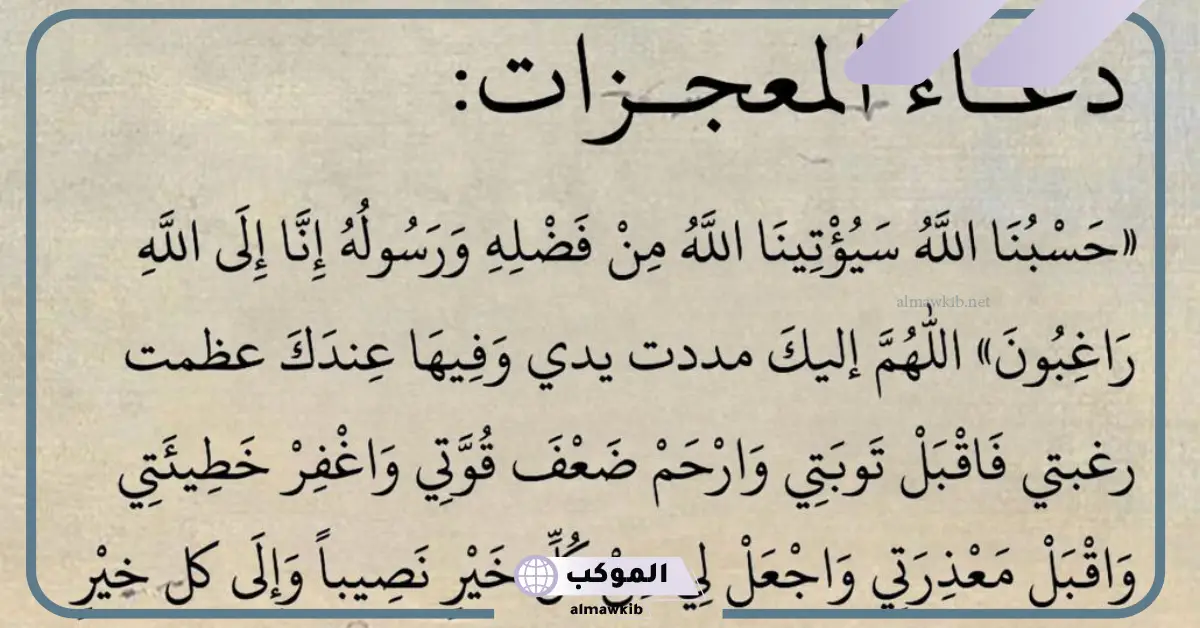 دعـــاء المعجـــزات:
«حَسْبُنَا اللَّهُ سَيُؤْتِينَا اللَّهُ مِنْ فَضْلِهِ وَرَسُولُهُ إِنَّا إِلَى اللَّهِ
almawkib.net
رَاغِبُونَ» اللَّهُمَّ إليكَ مددت يدي وَفِيهَا عِندَكَ عظمت
رغبتي فَاقْبَلْ تَوبَتِي وَارْحَمْ ضَعْفَ قُوَّتِي وَاغْفِرْ خَطِيئَتِي
وَاقْبَلْ مَعْذِرَتِي وَاجْعَلْ لِي مِنْ كُلِّ خَيْرٍ نَصِيباً وَإِلَى كل خيْرٍ
الموكب
almawkib